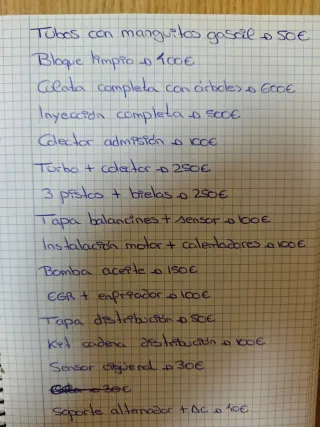 Tubos con manguitos gasoil → 50€
Bloque limpio → 400€
Culata completa con árboles → 600€
Inyección completa → 500€
Colector admisión → 100€
Turbo + colector → 250€
3 pistos + bielas → 250€
Tapa balancines + sensor → 100€
Instalación motor + calentadores → 100€
Bomba aceite → 150€
EGR + enfriador → 100€
Tapa distribución → 50€
Kit cadena distribución → 100€
Sensor cigüenal → 30€
→ 30€
Soporte alternador + AC → 40€